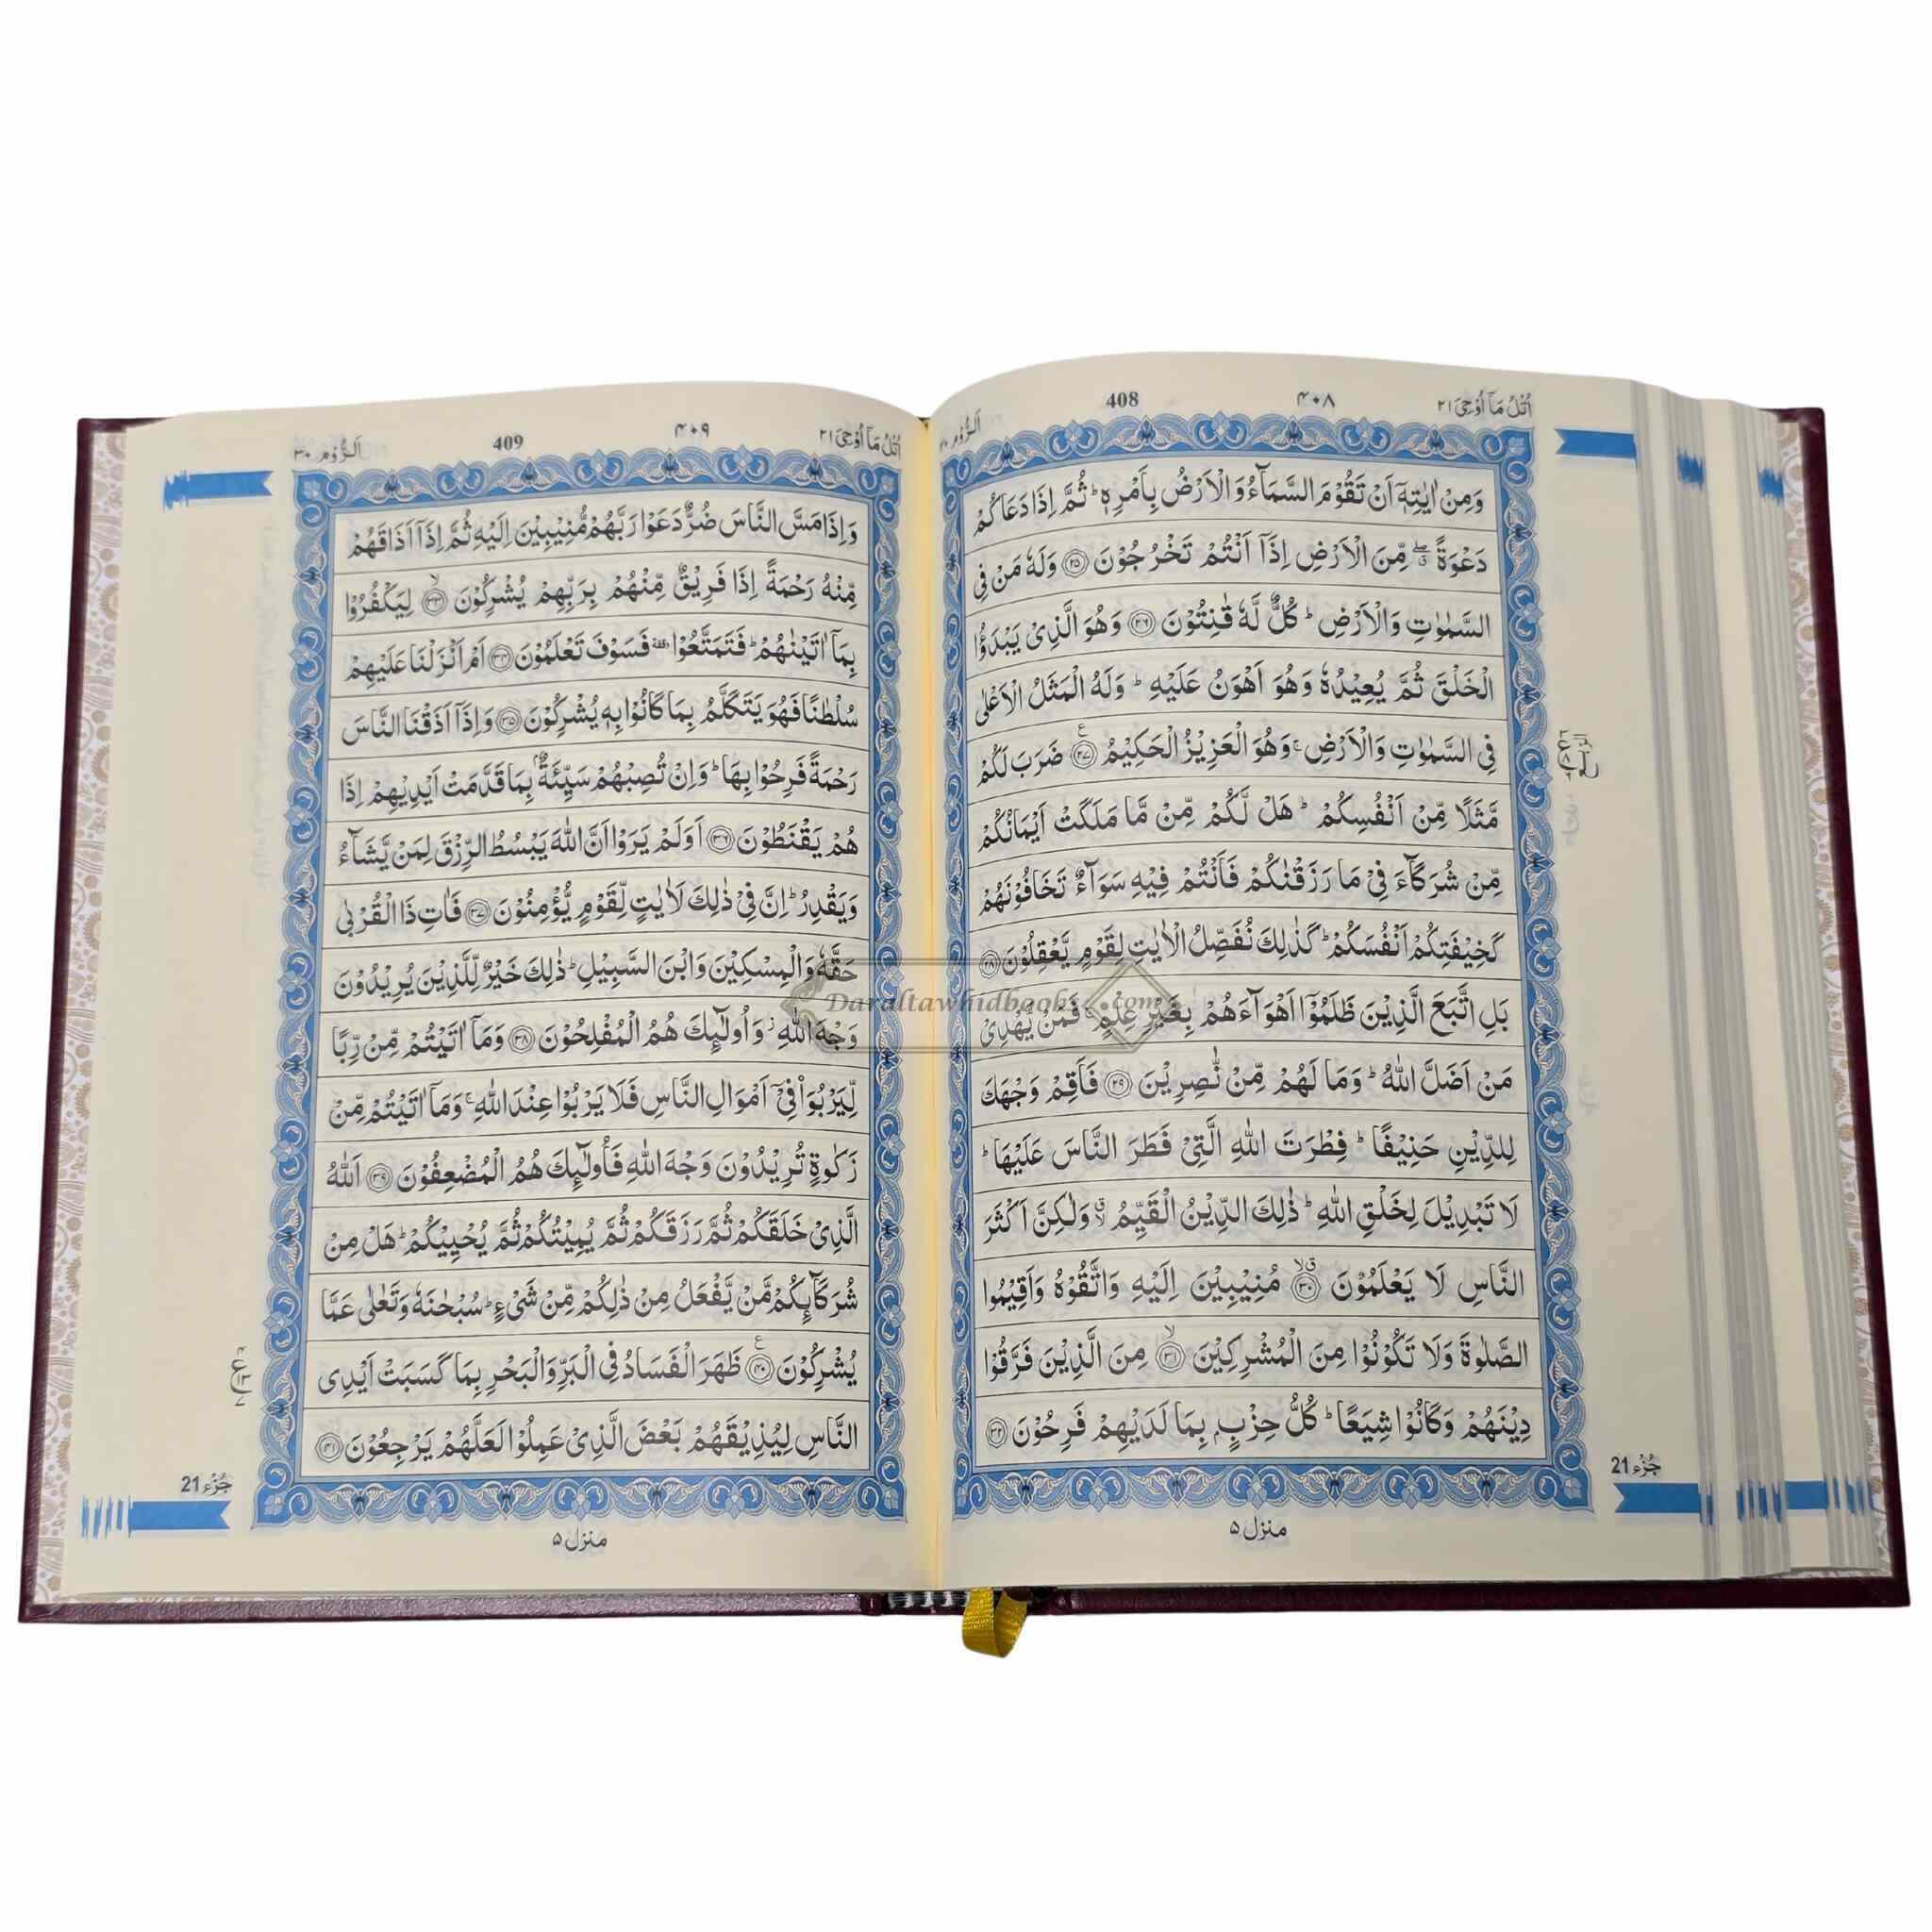 اُتْلُ مَآ اُوْحِیَ ۲۱
۴۰۸
408
اَلرُّوْم ۳۰
وَمِنْ اٰيٰتِهٖۤ اَنْ تَقُوْمَ السَّمَآءُ وَالْاَرْضُ بِاَمْرِهٖ ؕ ثُمَّ اِذَا دَعَاكُمْ
دَعْوَةً ۖۗ مِّنَ الْاَرْضِ اِذَاۤ اَنْتُمْ تَخْرُجُوْنَ ﴿۲۵﴾ وَلَهٗ مَنْ فِى
السَّمٰوٰتِ وَالْاَرْضِ ؕ كُلٌّ لَّهٗ قٰنِتُوْنَ ﴿۲۶﴾ وَهُوَ الَّذِىْ يَبْدَؤُا
الْخَلْقَ ثُمَّ يُعِيْدُهٗ وَهُوَ اَهْوَنُ عَلَيْهِ ؕ وَلَهُ الْمَثَلُ الْاَعْلٰى
فِى السَّمٰوٰتِ وَالْاَرْضِ ۚ وَهُوَ الْعَزِيْزُ الْحَكِيْمُ ﴿۲۷﴾ ضَرَبَ لَكُمْ
مَّثَلًا مِّنْ اَنْفُسِكُمْ ؕ هَلْ لَّكُمْ مِّنْ مَّا مَلَكَتْ اَيْمَانُكُمْ
مِّنْ شُرَكَآءَ فِىْ مَا رَزَقْنٰكُمْ فَاَنْتُمْ فِيْهِ سَوَآءٌ تَخَافُوْنَهُمْ
كَخِيْفَتِكُمْ اَنْفُسَكُمْ ؕ كَذٰلِكَ نُفَصِّلُ الْاٰيٰتِ لِقَوْمٍ يَّعْقِلُوْنَ ﴿۲۸﴾
بَلِ اتَّبَعَ الَّذِيْنَ ظَلَمُوْۤا اَهْوَآءَهُمْ بِغَيْرِ عِلْمٍ ۚ فَمَنْ يَّهْدِىْ
مَنْ اَضَلَّ اللّٰهُ ؕ وَمَا لَهُمْ مِّنْ نّٰصِرِيْنَ ﴿۲۹﴾ فَاَقِمْ وَجْهَكَ
لِلدِّيْنِ حَنِيْفًا ؕ فِطْرَتَ اللّٰهِ الَّتِىْ فَطَرَ النَّاسَ عَلَيْهَا ؕ
لَا تَبْدِيْلَ لِخَلْقِ اللّٰهِ ؕ ذٰلِكَ الدِّيْنُ الْقَيِّمُ ۙۗ وَلٰكِنَّ اَكْثَرَ
النَّاسِ لَا يَعْلَمُوْنَ ﴿۳۰﴾ مُنِيْبِيْنَ اِلَيْهِ وَاتَّقُوْهُ وَاَقِيْمُوا
الصَّلٰوةَ وَلَا تَكُوْنُوْا مِنَ الْمُشْرِكِيْنَ ﴿۳۱﴾ مِنَ الَّذِيْنَ فَرَّقُوْا
دِيْنَهُمْ وَكَانُوْا شِيَعًا ؕ كُلُّ حِزْبٍۭ بِمَا لَدَيْهِمْ فَرِحُوْنَ ﴿۳۲﴾
جُزْء 21
منزل ۵
اُتْلُ مَآ اُوْحِیَ ۲۱
۴۰۹
409
اَلرُّوْم ۳۰
وَاِذَا مَسَّ النَّاسَ ضُرٌّ دَعَوْا رَبَّهُمْ مُّنِيْبِيْنَ اِلَيْهِ ثُمَّ اِذَاۤ اَذَاقَهُمْ
مِّنْهُ رَحْمَةً اِذَا فَرِيْقٌ مِّنْهُمْ بِرَبِّهِمْ يُشْرِكُوْنَ ﴿۳۳﴾ لِيَكْفُرُوْا
بِمَاۤ اٰتَيْنٰهُمْ ؕ فَتَمَتَّعُوْا ٝ فَسَوْفَ تَعْلَمُوْنَ ﴿۳۴﴾ اَمْ اَنْزَلْنَا عَلَيْهِمْ
سُلْطٰنًا فَهُوَ يَتَكَلَّمُ بِمَا كَانُوْا بِهٖ يُشْرِكُوْنَ ﴿۳۵﴾ وَاِذَاۤ اَذَقْنَا النَّاسَ
رَحْمَةً فَرِحُوْا بِهَا ؕ وَاِنْ تُصِبْهُمْ سَيِّئَةٌۢ بِمَا قَدَّمَتْ اَيْدِيْهِمْ اِذَا
هُمْ يَقْنَطُوْنَ ﴿۳۶﴾ اَوَلَمْ يَرَوْا اَنَّ اللّٰهَ يَبْسُطُ الرِّزْقَ لِمَنْ يَّشَآءُ
وَيَقْدِرُ ؕ اِنَّ فِىْ ذٰلِكَ لَاٰيٰتٍ لِّقَوْمٍ يُّؤْمِنُوْنَ ﴿۳۷﴾ فَاٰتِ ذَا الْقُرْبٰى
حَقَّهٗ وَالْمِسْكِيْنَ وَابْنَ السَّبِيْلِ ؕ ذٰلِكَ خَيْرٌ لِّلَّذِيْنَ يُرِيْدُوْنَ
وَجْهَ اللّٰهِ ۡ وَاُولٰٓئِكَ هُمُ الْمُفْلِحُوْنَ ﴿۳۸﴾ وَمَاۤ اٰتَيْتُمْ مِّنْ رِّبًا
لِّيَرْبُوَا۟ فِىْۤ اَمْوَالِ النَّاسِ فَلَا يَرْبُوْا عِنْدَ اللّٰهِ ۚ وَمَاۤ اٰتَيْتُمْ مِّنْ
زَكٰوةٍ تُرِيْدُوْنَ وَجْهَ اللّٰهِ فَاُولٰٓئِكَ هُمُ الْمُضْعِفُوْنَ ﴿۳۹﴾ اَللّٰهُ
الَّذِىْ خَلَقَكُمْ ثُمَّ رَزَقَكُمْ ثُمَّ يُمِيْتُكُمْ ثُمَّ يُحْيِيْكُمْ ؕ هَلْ مِنْ
شُرَكَآئِكُمْ مَّنْ يَّفْعَلُ مِنْ ذٰلِكُمْ مِّنْ شَىْءٍ ؕ سُبْحٰنَهٗ وَتَعٰلٰى عَمَّا
يُشْرِكُوْنَ ﴿۴۰﴾ ظَهَرَ الْفَسَادُ فِى الْبَرِّ وَالْبَحْرِ بِمَا كَسَبَتْ اَيْدِى
النَّاسِ لِيُذِيْقَهُمْ بَعْضَ الَّذِىْ عَمِلُوْا لَعَلَّهُمْ يَرْجِعُوْنَ ﴿۴۱﴾
جُزْء 21
منزل ۵
Daraltawhidbooks.com